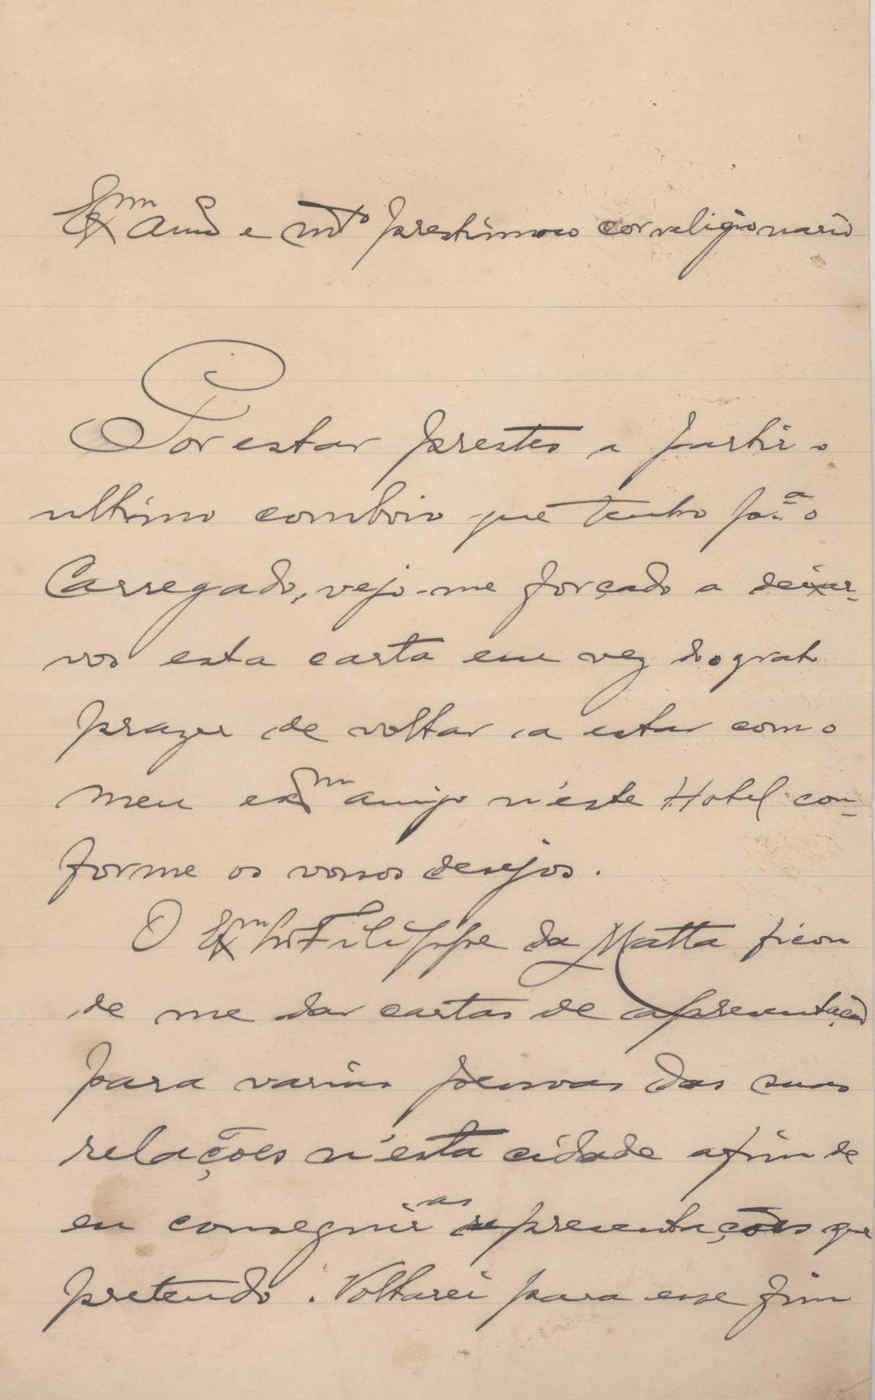 Exmo Amo e mto prestimoso correligionario
Por estar prestes a partir o
ultimo comboio que tenho pa o
Carregado, vejo-me forçado a deixar-
vos esta carta em vez do grato
prazer de voltar a estar com o
meu exmo amigo n'este Hotel con-
forme os vossos desejos.
O Exmo Sr Filippe da Matta ficou
de me dar cartas de apresentação
para varias pessoas das suas
relações n'esta cidade afim de
eu conseguir as representações que
pretendo. Voltarei para esse fim